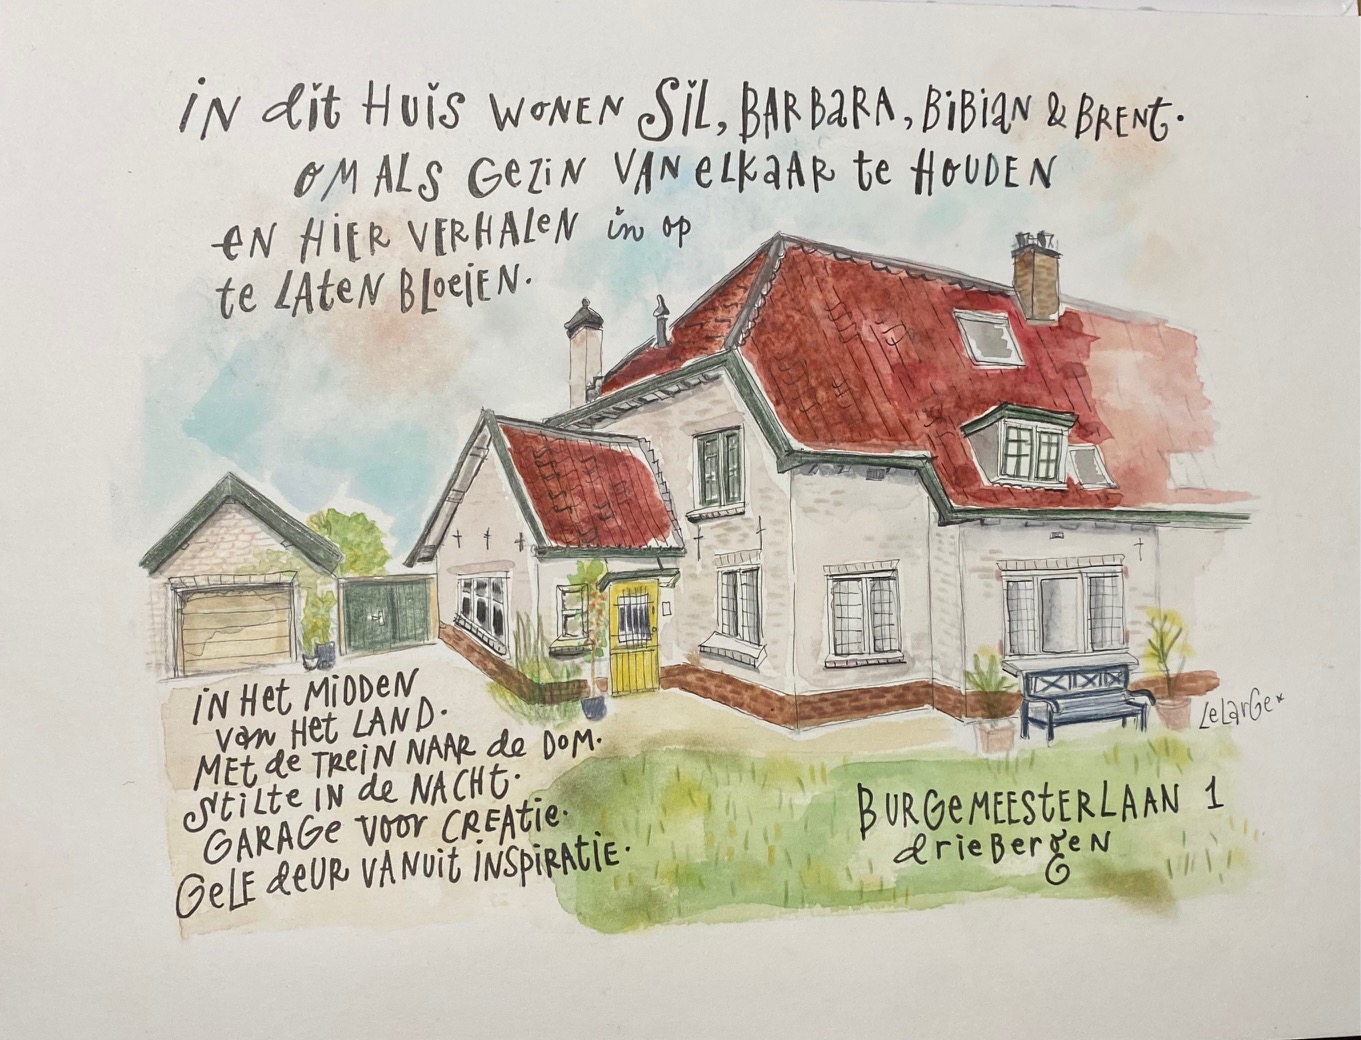 iN dit HUiS WONEN SiL, BARBaRA, BiBiaN & BRENt.
OM ALS GeZiN VAN eLKaAR te HOUDEN
eN HiER VERHALeN in op
te LAteN BLoeiEN.
iN Het MiDDEN
van Het LAND.
MEt de TReiN NAAR de DOM.
StiLte IN de NACHt.
GARAGe VOOr CREAtie.
GeLE deUR VANUit iNSPiRATiE.
LeLarGe*
BURGeMEESTERLAAN 1
drieBergeN